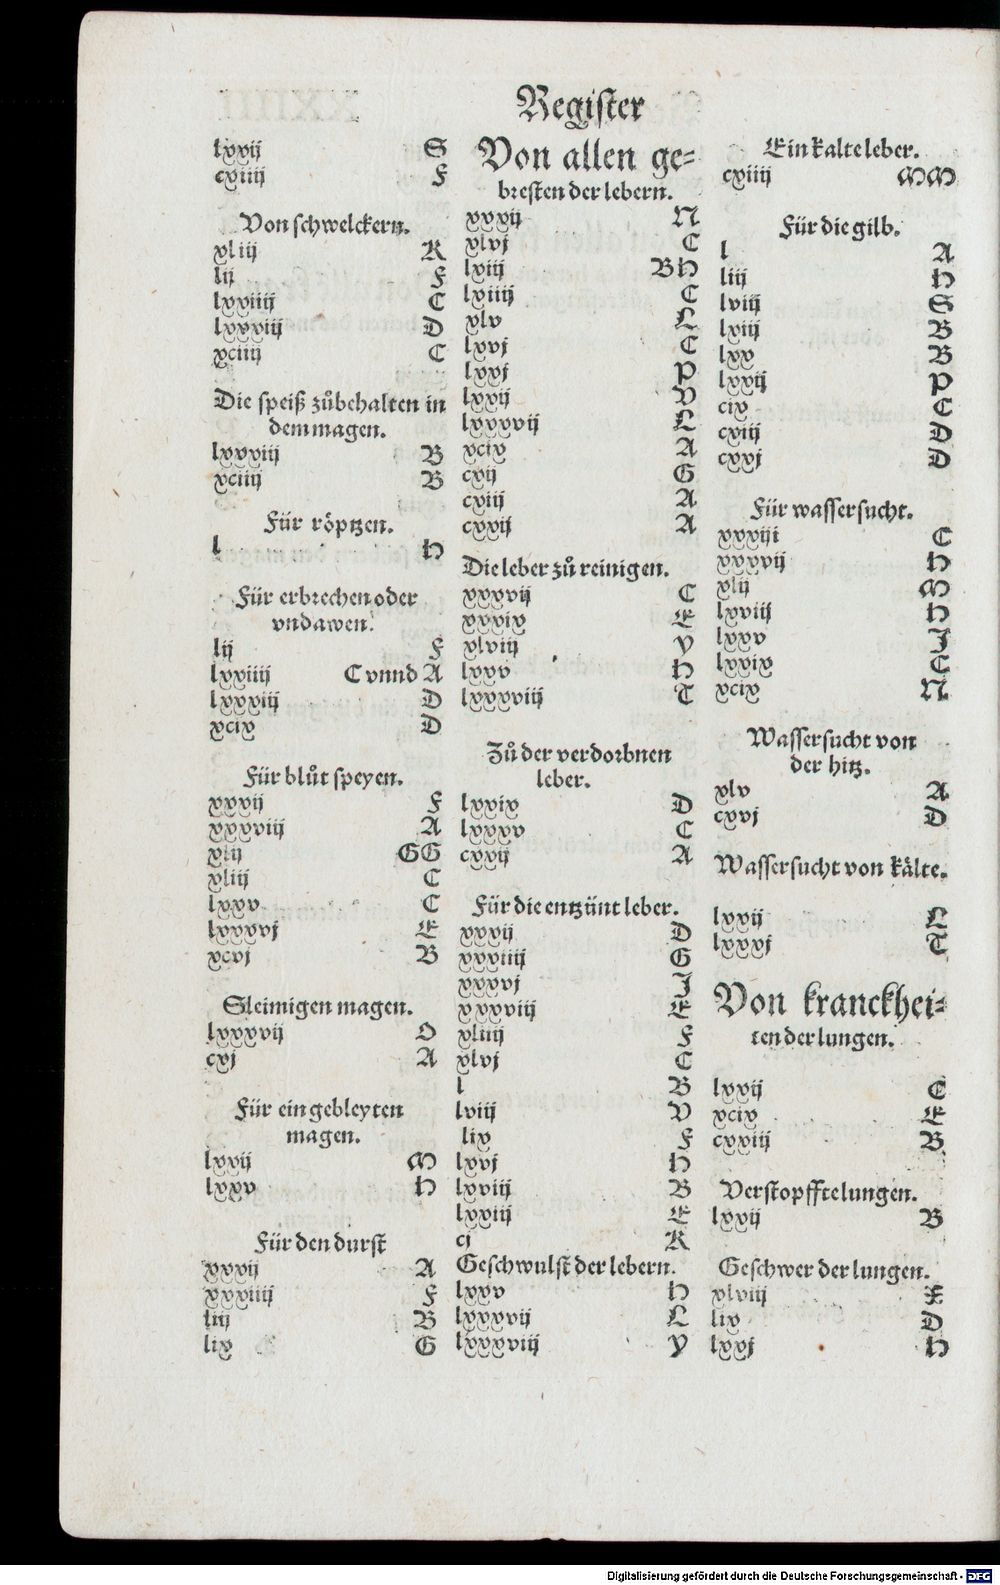 Register
lxxij S
cxiiij F
Von schwelckern.
xliij K
lij F
lxxiiij C
lxxxiij D
xciiij C
Die speiß zůbehalten in
dem magen.
lxxxiij B
xciiij B
Für röptzen.
l H
Für erbrechen oder
vndawen.
lij F
lxxiiij C vnnd A
lxxxiij D
xcix D
Für blůt speyen.
xxxij F
xxxviij A
xlij GG
xliij C
lxxv C
lxxxvj E
xcvj B
Sleimigen magen.
lxxxvij O
cxj A
Für ein gebleyten
magen.
lxvij M
lxxv H
Für den durst
xxxij A
xxxiiij F
liij B
lix G
Von allen ge⸗
bresten der lebern.
xxxij N
xlvj C
lxiij BH
lxiiij C
xlv L
lxvj C
lxxj P
lxxij V
lxxxvij L
xcix A
cxij G
cxiij A
cxxij A
Die leber zů reinigen.
xxxvij C
xxxix E
xlviij Y
lxxv H
lxxxviij T
Zů der verdorbnen
leber.
lxxix D
lxxxv C
cxxij A
Für die entzünt leber.
xxxij D
xxxiiij G
xxxvj J
xxxviij E
xliiij F
xlvj C
l B
lviij V
lix F
lxvj H
lxviij B
lxxiij E
cj K
Geschwulst der lebern.
lxxv H
lxxxvij L
lxxxviij Y
Ein kalte leber.
cxiiij MM
Für die gilb.
l A
liij H
lviij S
lxiij B
lxx B
lxxij P
cix C
cxiij D
cxxj D
Für wassersucht.
xxxiij C
xxxvij H
xlij M
lxviij H
lxxv J
lxxix C
xcix N
Wassersucht von
der hitz.
xlv A
cxvj D
Wassersucht von kälte.
lxxij L
lxxxj T
Von kranckhei⸗
ten der lungen.
lxxij C
xcix E
cxxiij B
Verstopffte lungen.
lxxij B
Geschwer der lungen.
xlviij X
lix D
lxxj H
Digitalisierung gefördert durch die Deutsche Forschungsgemeinschaft - DFG